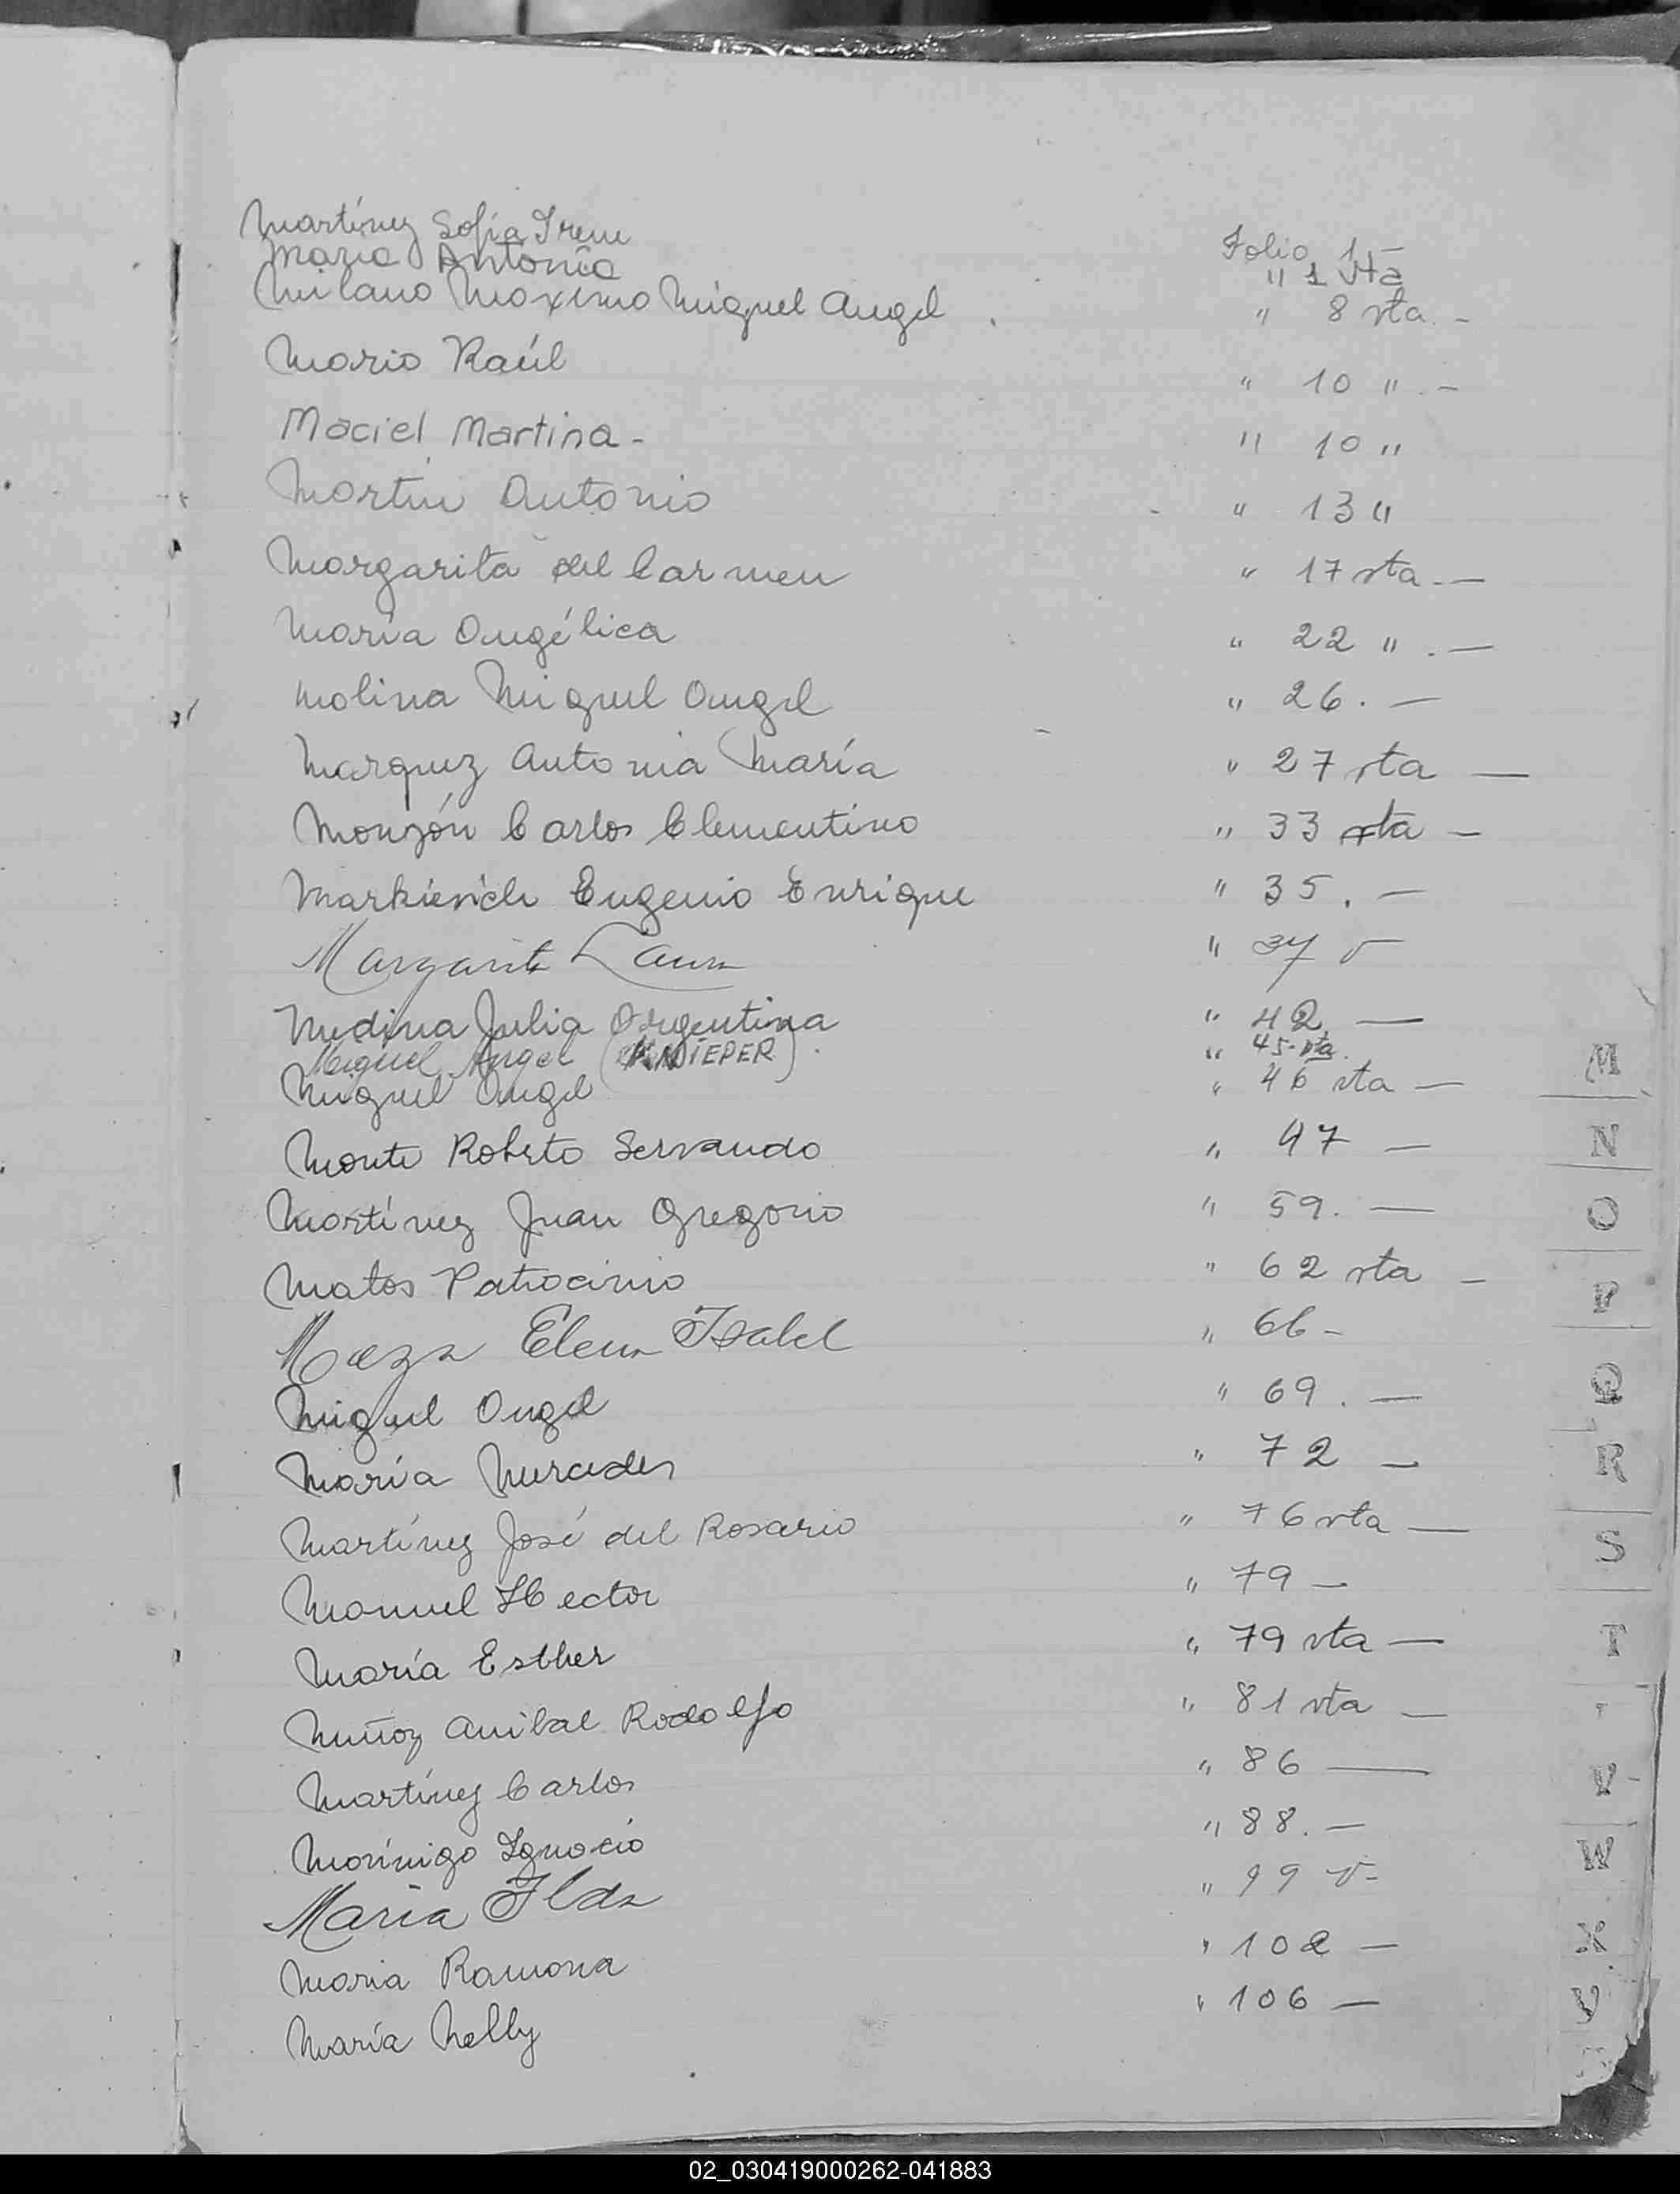 Martínez Sofía Irene Folio 1-
Maria Antonia " 1 vta
Milano Maximo Miguel Angel . " 8 vta. -
Mario Raúl " 10 " . -
Maciel Martina - " 10 "
Martin Antonio " 13 "
Margarita del Carmen " 17 vta. -
María Angélica " 22 " . -
Molina Miguel Angel " 26 . -
Marquez Antonia María " 27 vta -
Monzón Carlos Clementino " 33 vta -
Markievich Eugenio Enrique " 35 . -
Margarita Laura " 37 v
Medina Julia Argentina " 42 -
Miguel Angel (KNIEPER) . " 45-vta.
Miguel Angel " 46 vta -
M
Monte Roberto Servando " 47 -
N
Martínez Juan Gregorio " 59. -
O
Matos Patrocinio " 62 vta -
P
Meza Elena Isabel " 66 -
Miguel Angel " 69 . -
Q
María Mercedes " 72 -
R
Martínez José del Rosario " 76 vta -
S
Manuel Hector " 79 -
María Esther " 79 vta -
T
Muñoz Anibal Rodolfo " 81 vta -
Martínez Carlos " 86 -
V
Morinigo Ignacio " 88. -
W
Maria Ilda " 99 v-
X
Maria Ramona " 102 -
María Nelly " 106 -
Y
02_030419000262-041883